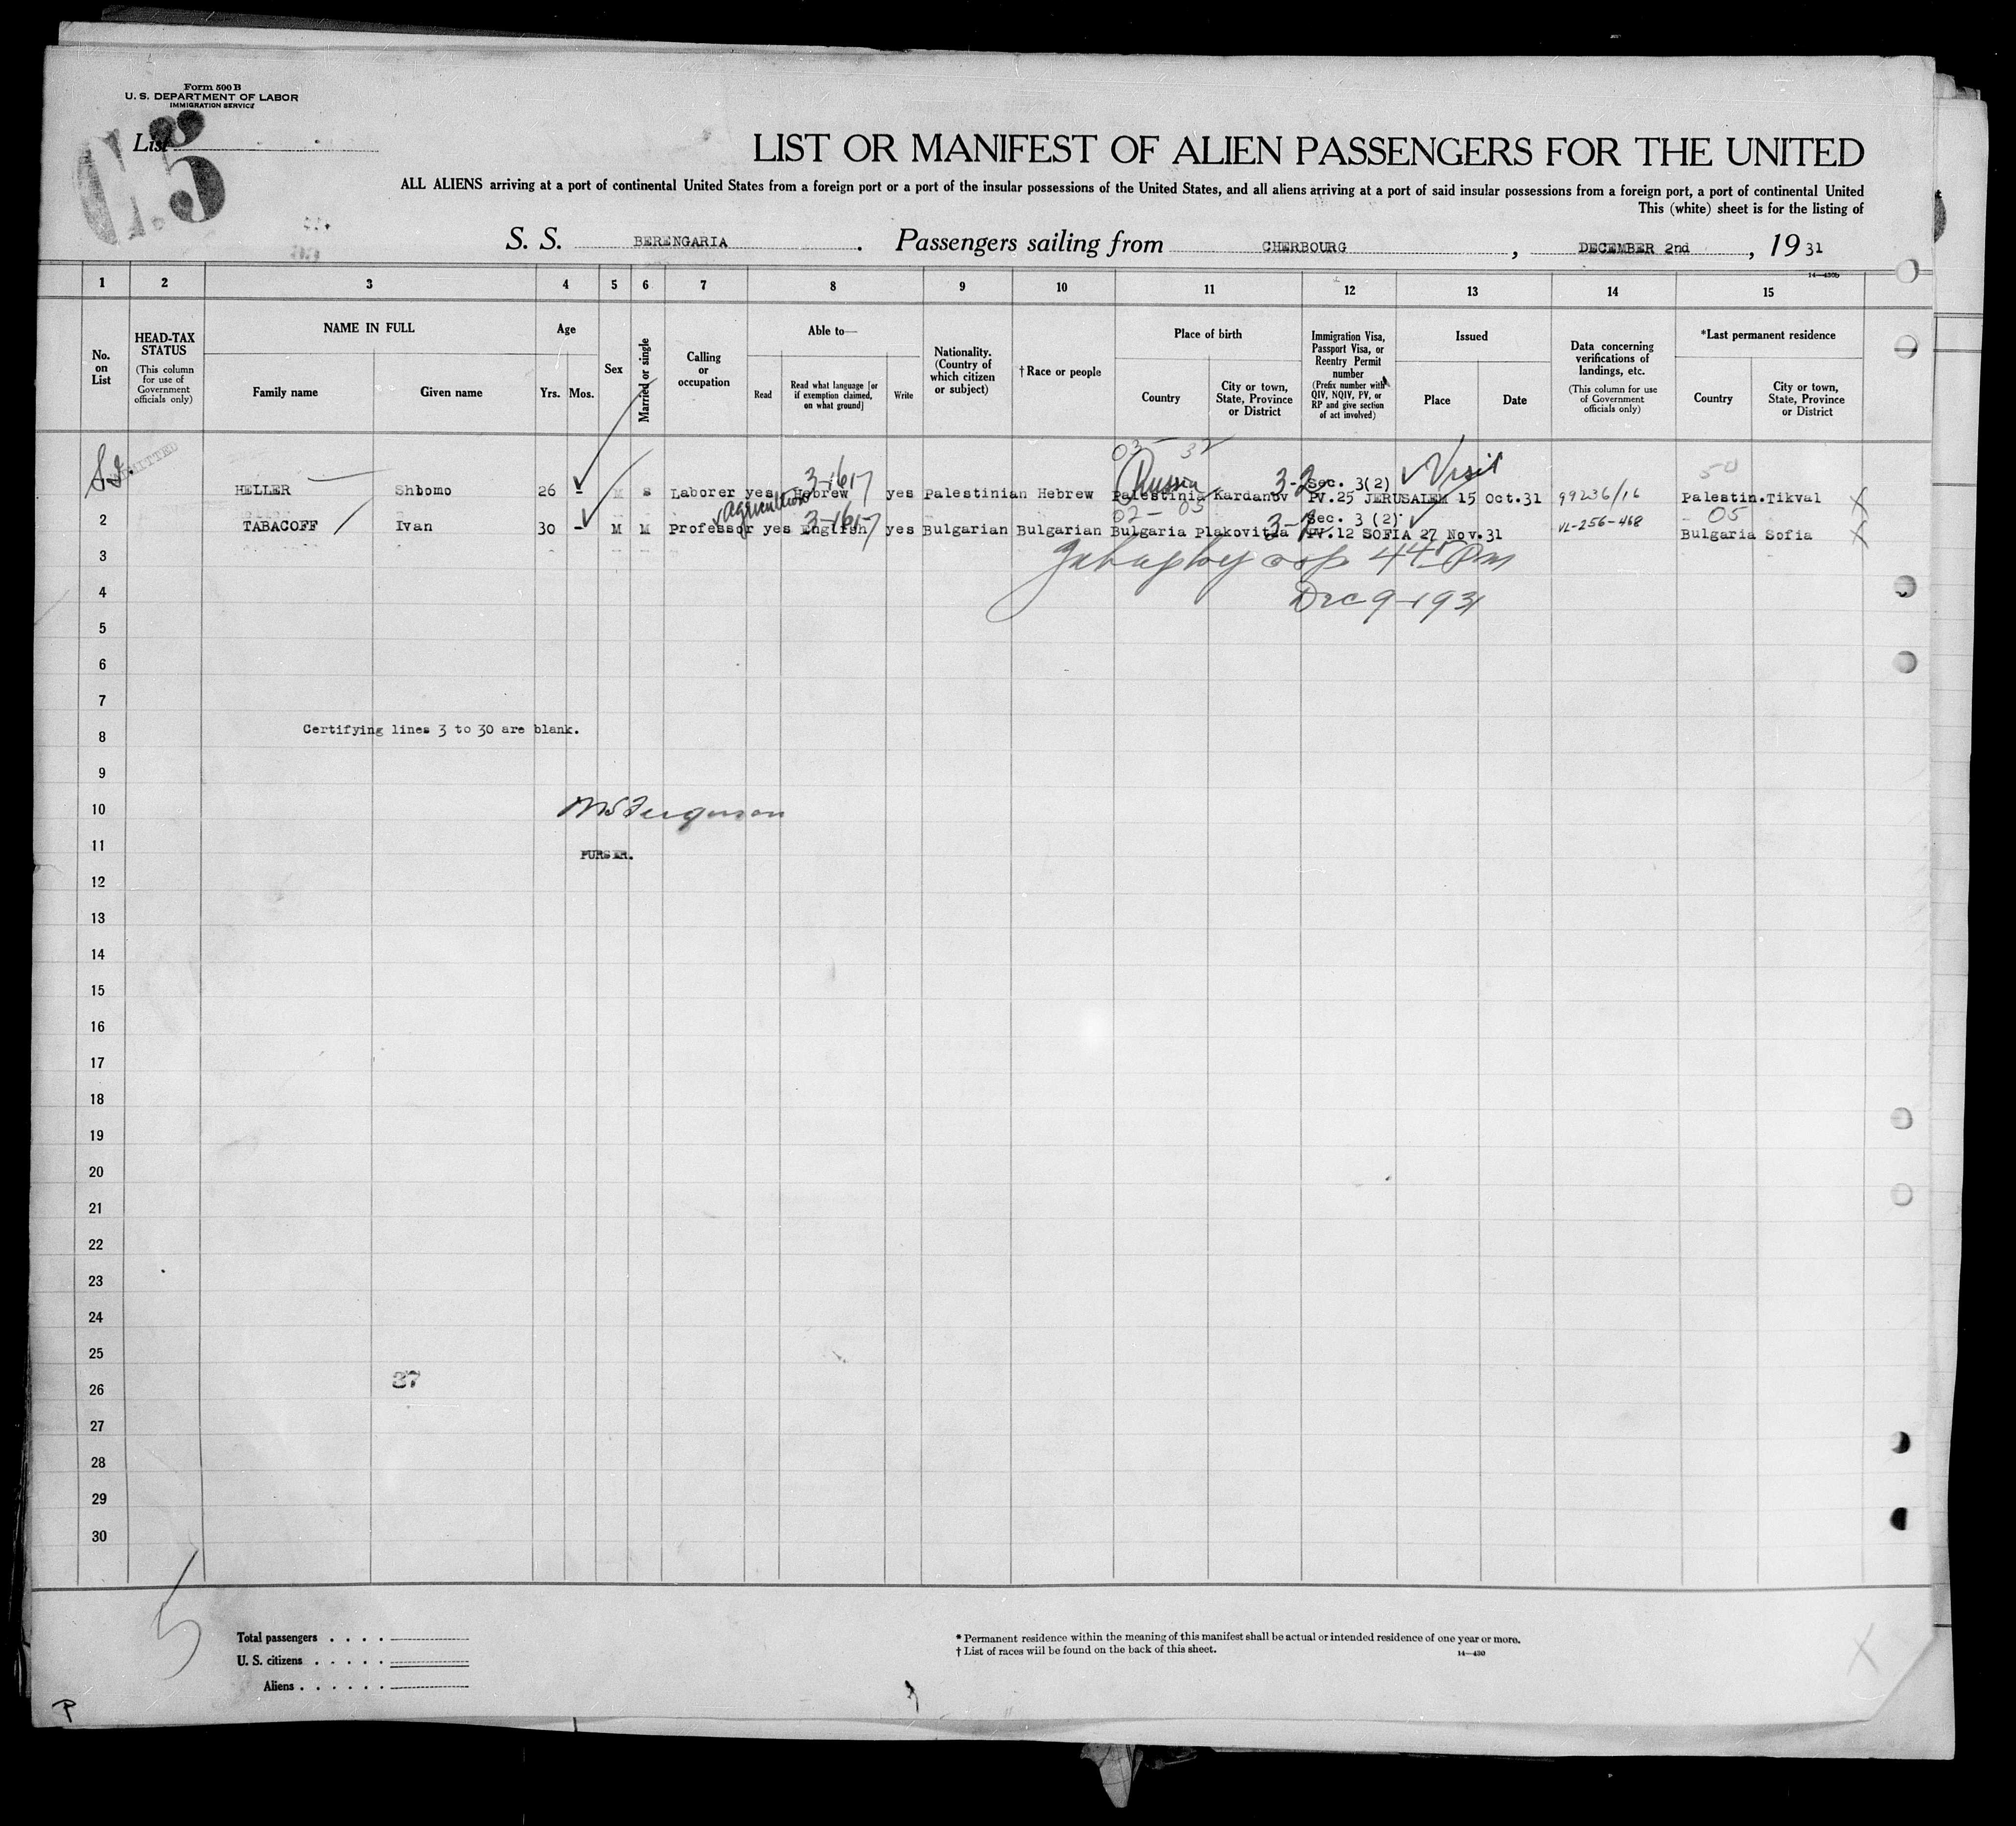 Form 500 B
U. S. DEPARTMENT OF LABOR
IMMIGRATION SERVICE
List
5
LIST OR MANIFEST OF ALIEN PASSENGERS FOR THE UNITED
ALL ALIENS arriving at a port of continental United States from a foreign port or a port of the insular possessions of the United States, and all aliens arriving at a port of said insular possessions from a foreign port, a port of continental United
This (white) sheet is for the listing of
S. S. BERENGARIA . Passengers sailing from CHERBOURG , DECEMBER 2nd , 19 31
14—430b
1 2 3 4 5 6 7 8 9 10 11 12 13 14 15
No. on List
HEAD-TAX STATUS
(This column for use of Government officials only)
NAME IN FULL
Family name
Given name
Age
Yrs. Mos.
Sex
Married or single
Calling or occupation
Able to—
Read
Read what language [or if exemption claimed, on what ground]
Write
Nationality. (Country of which citizen or subject)
†Race or people
Place of birth
Country
City or town, State, Province or District
Immigration Visa, Passport Visa, or Reentry Permit number
(Prefix number with QIV, NQIV, PV, or RP and give section of act involved)
Issued
Place
Date
Data concerning verifications of landings, etc.
(This column for use of Government officials only)
*Last permanent residence
Country
City or town, State, Province or District
ADMITTED
03 - 32
Russia 3-2 Sec. 3(2) Visit
3-1617
HELLER Shbomo 26 - M S Laborer yes Hebrew yes Palestinian Hebrew Palestinia Kardanov PV.25 JERUSALEM 15 Oct.31 99236/16 Palestin.Tikval X
agriculture 3-1617 02- 05 3-2 Sec. 3 (2) 05
2 TABACOFF Ivan 30 - M M Professor yes English yes Bulgarian Bulgarian Bulgaria Plakovitza PV.12 SOFIA 27 Nov.31 VL-256-468 Bulgaria Sofia X
3
445 Pm
4 Dec 9-1931
5
6
7
8 Certifying lines 3 to 30 are blank.
9
10 Ferguson
11 PURSER.
12
13
14
15
16
17
18
19
20
21
22
23
24
25
26 37
27
28
29
30
5
Total passengers . . . .
U. S. citizens . . . . .
Aliens . . . . . .
* Permanent residence within the meaning of this manifest shall be actual or intended residence of one year or more.
† List of races will be found on the back of this sheet.
14—430
X
P